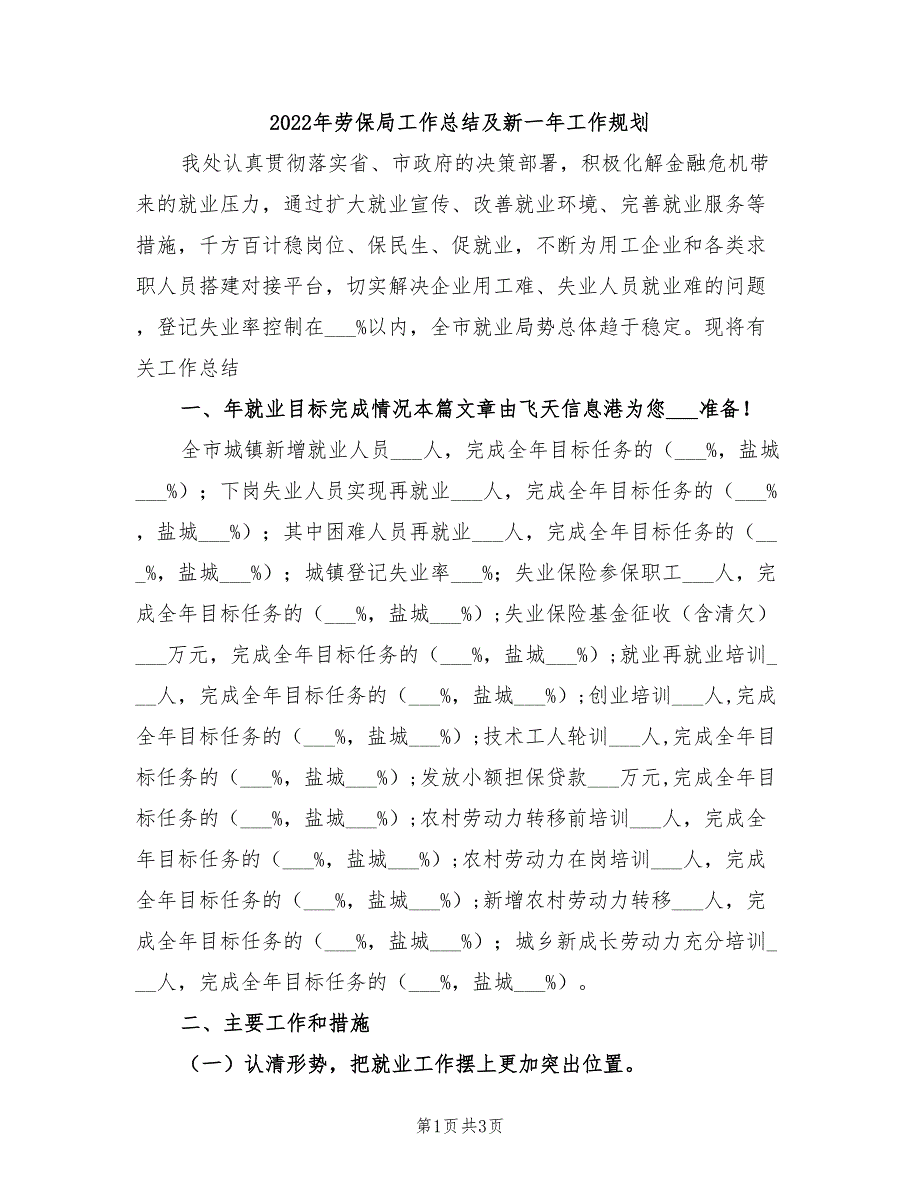 2022年劳保局工作总结及新一年工作规划
我处认真贯彻落实省、市政府的决策部署，积极化解金融危机带
来的就业压力，通过扩大就业宣传、改善就业环境、完善就业服务等
措施，千方百计稳岗位、保民生、促就业，不断为用工企业和各类求
职人员搭建对接平台，切实解决企业用工难、失业人员就业难的问题
，登记失业率控制在___%以内，全市就业局势总体趋于稳定。现将有
关工作总结
一、年就业目标完成情况本篇文章由飞天信息港为您___准备！
全市城镇新增就业人员___人，完成全年目标任务的（___%，盐城
___%）；下岗失业人员实现再就业___人，完成全年目标任务的（___%
，盐城___%）；其中困难人员再就业___人，完成全年目标任务的（__
_%，盐城___%）；城镇登记失业率___%；失业保险参保职工___人，完
成全年目标任务的（___%，盐城___%）;失业保险基金征收（含清欠）
___万元，完成全年目标任务的（___%，盐城___%）;就业再就业培训_
__人，完成全年目标任务的（___%，盐城___%）;创业培训___人,完成
全年目标任务的（___%，盐城___%）;技术工人轮训___人,完成全年目
标任务的（___%，盐城___%）;发放小额担保贷款___万元,完成全年目
标任务的（___%，盐城___%）;农村劳动力转移前培训___人，完成全
年目标任务的（___%，盐城___%）;农村劳动力在岗培训___人，完成
全年目标任务的（___%，盐城___%）;新增农村劳动力转移___人，完
成全年目标任务的（___%，盐城___%）；城乡新成长劳动力充分培训_
__人，完成全年目标任务的（___%，盐城___%）。
二、主要工作和措施
（一）认清形势，把就业工作摆上更加突出位置。
第1页共3页